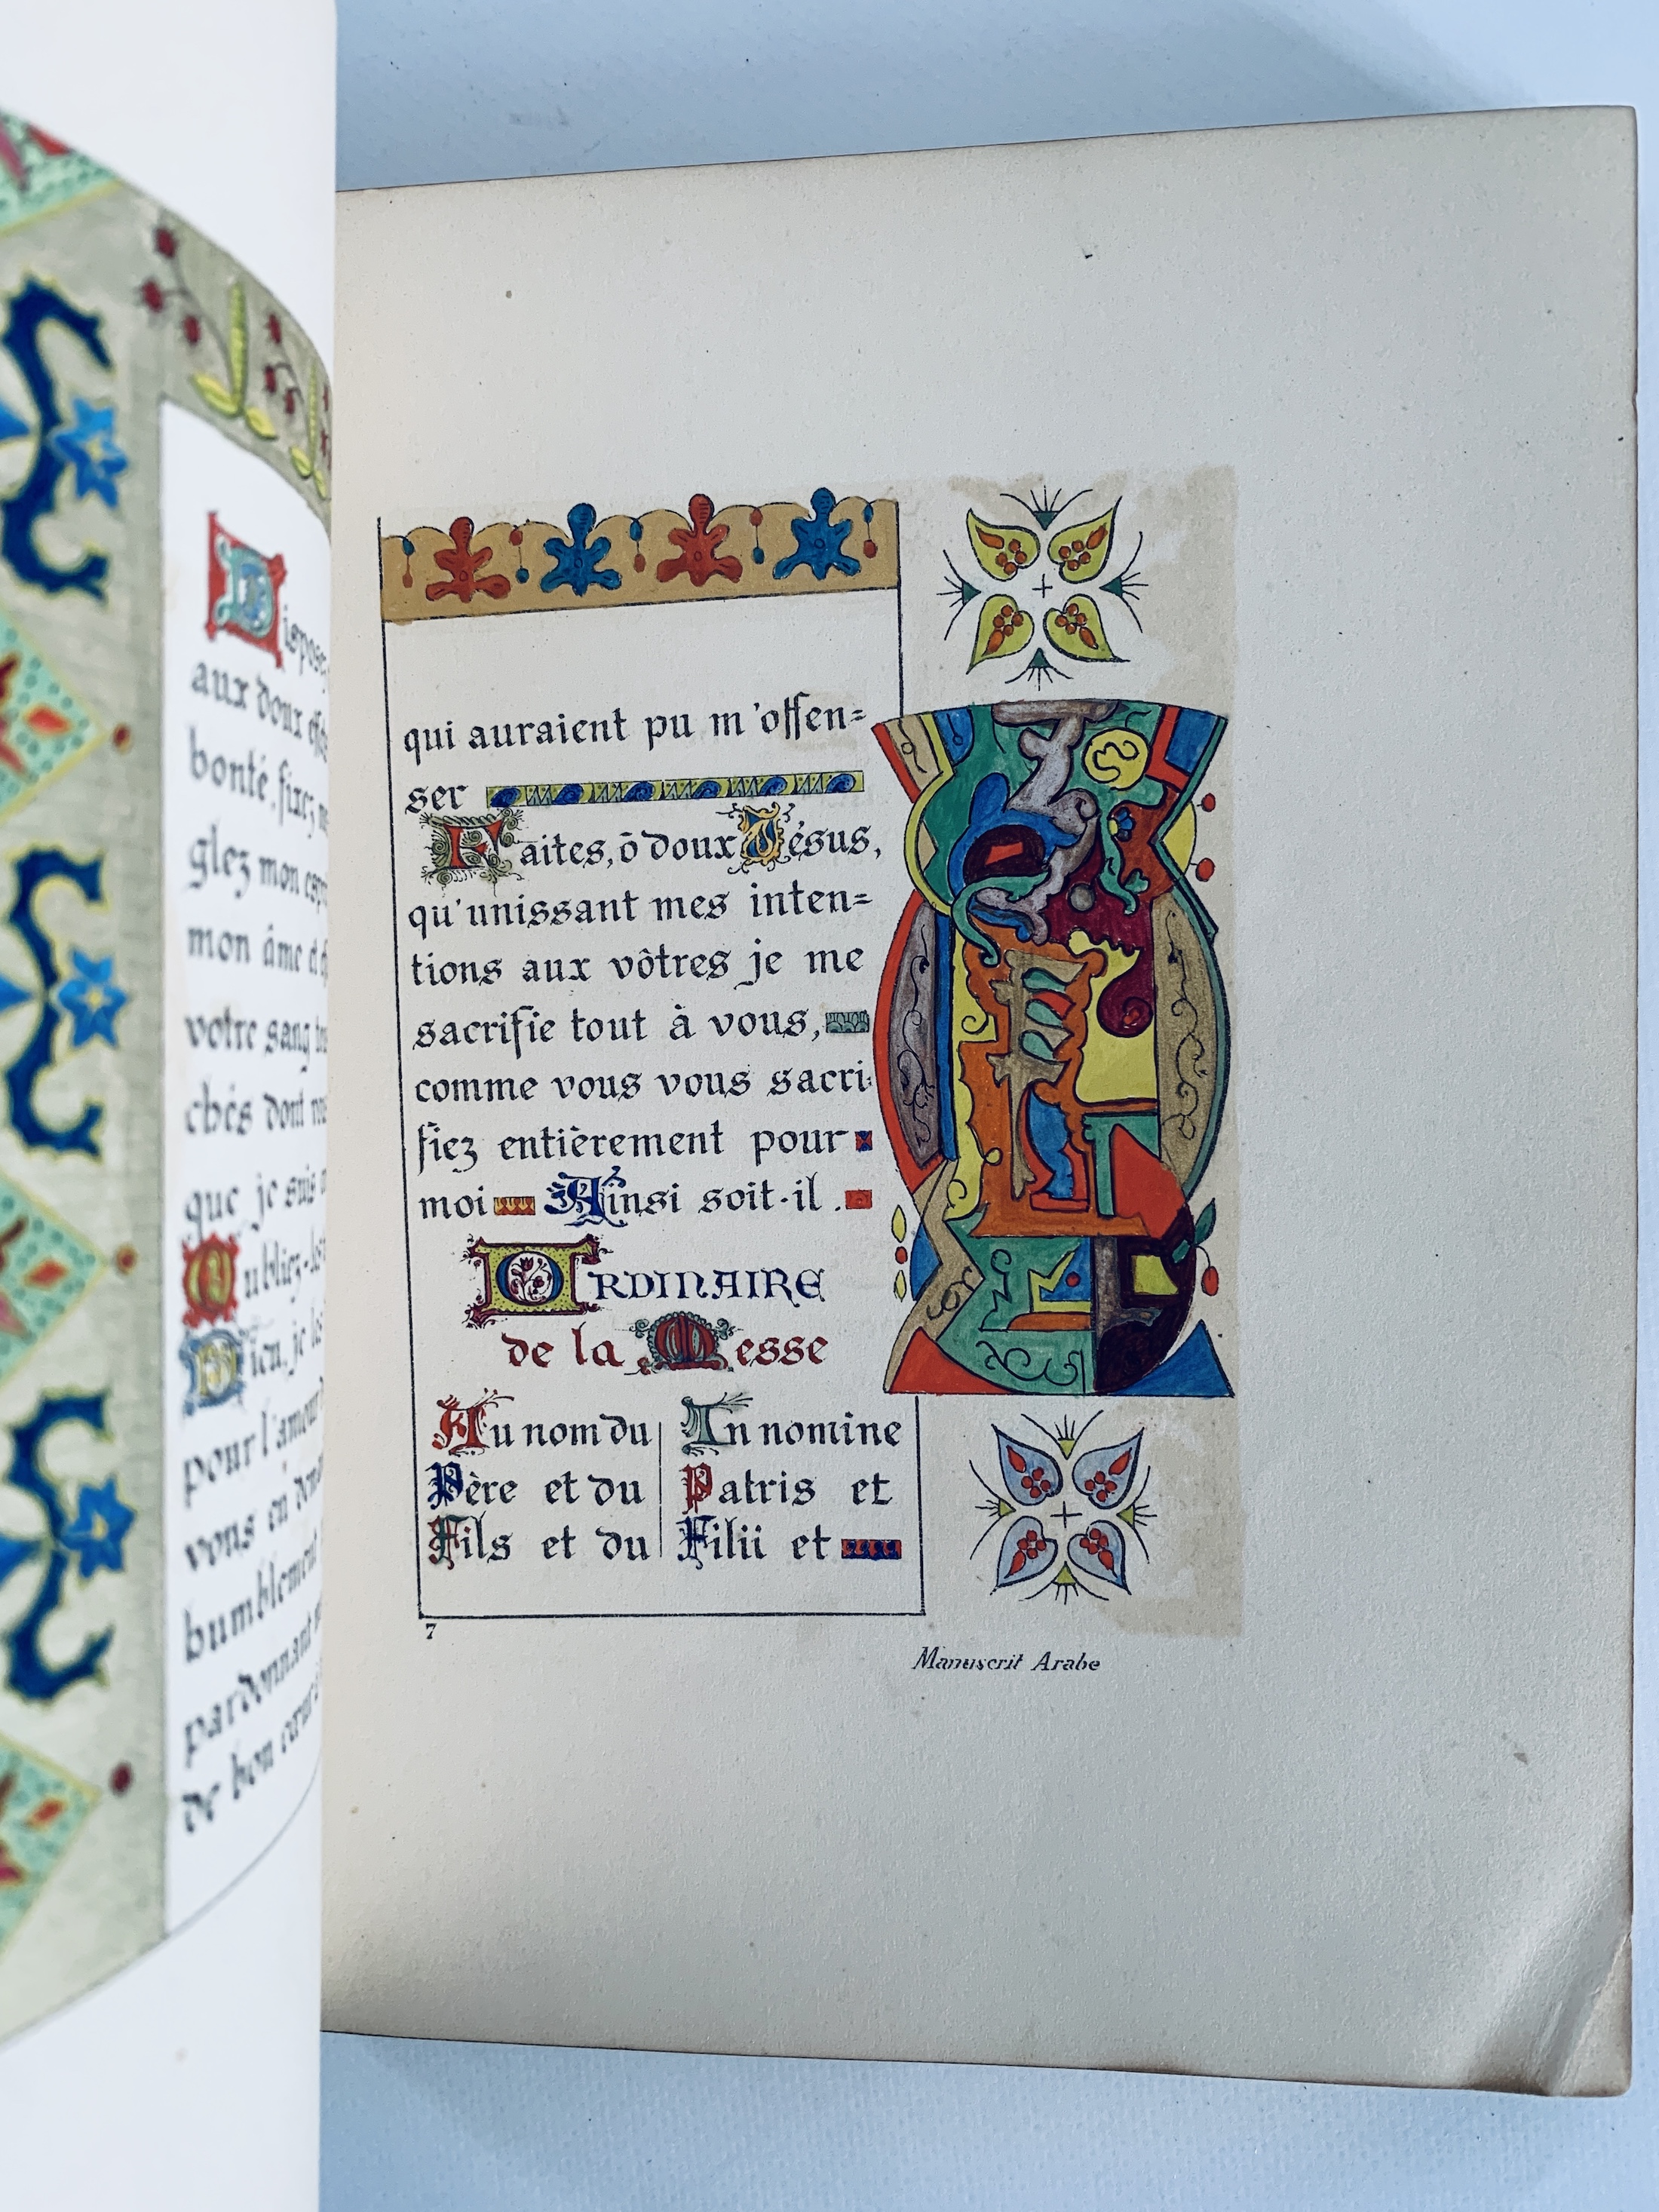 Dispose
aux doux
bonté, fixez
glez mon
mon âme et
votre sang
chés dont
que je suis
Oubliez-les
Dieu, je les
pour l'amour
vous en
humblement
pardonnant
de bon cœur
qui auraient pu m'offen=
ser
Faites, ô doux Jésus,
qu'unissant mes inten=
tions aux vôtres je me
sacrifie tout à vous,
comme vous vous sacri-
fiez entièrement pour
moi Ainsi soit-il.
ORDINAIRE
de la Messe
Au nom du
Père et du
Fils et du
In nomine
Patris et
Filii et
7
Manuscrit Arabe